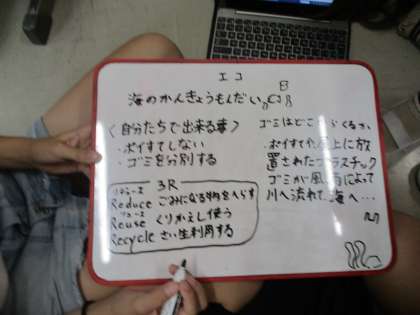 エコ
海のかんきょうもんだい
〈自分たちで出来る事〉
・ポイすてしない
・ゴミを分別する
3R
リデュース
Reduce ごみになる物をへらす
リユース
Reuse くりかえし使う
Recycle さい生利用する
ゴミはどこからくるか
・ポイすてや 上に放
置されたプラスチック
ゴミが風 によって
川へ流れて海へ…